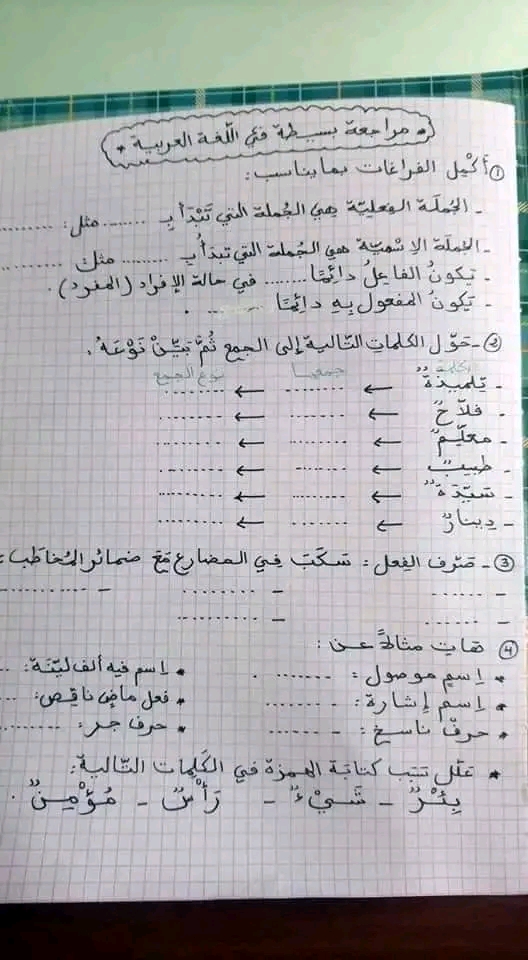 * مراجعة بسيطة في اللّغة العربية *
① أكْمِل الفراغات بما يناسب:
- الجُملَة الفِعليّة هِيَ الجُملة التي تَبْدَأ بِ ........ مثل: ..........
- الجملة الإسْميّة هي الجُملة التي تبدَأُ بِ ......... مثل ..........
- يكونُ الفاعِل دائِمًا ....... في حالة الإفراد (المفرد).
- يكونُ المفعول بِهِ دائِمًا ........ .
② - حَوِّل الكلمات التّالية إلى الجمع ثُمَّ بَيِّنْ نَوْعَهُ.
الكلمة جمعها نوع الجمع
- تلميذَةٌ ← ........ ← ........
- فلاّحٌ ← ........ ← ........
- معلّمٌ ← ........ ← ........
- طبيبٌ ← ........ ← ........
- سيّدَةٌ ← ........ ← ........
- دِينارٌ ← ........ ← ........
③ - صَرِّف الفِعل: سَكَبَ فِي المضارع مَعَ ضمائر المُخاطَب:
- ...... - ........ - ..........
- ...... - ........
④ هَاتِ مثالاً عن:
* اِسمِ موصول: ........ . * اِسم فيه ألف ليّنَة: ..
* اِسم إشارة: ......... * فعل ماضٍ ناقِص: ..
* حرفٌ ناسخ: ....... * حرف جر: ........
* علّل سَبَب كتابة الهمزة في الكَلِمات التّالية:
بِئْرٌ - شَيْءٌ - رَأْسٌ - مُؤْمِنٌ .